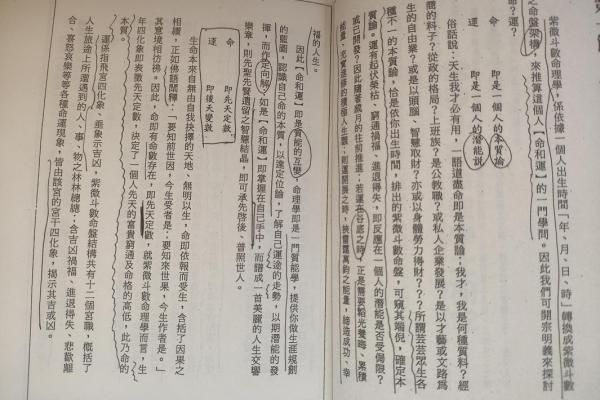 紫微斗數命理學,係依據一個人出生時間「年、月、日、時」轉換成紫微斗數
之命盤架構,來推算這個人【命和運】的一門學問。因此我們可開宗明義來探討
命?運?
命 即是一個人的本質論
運 即是一個人的潛能說
俗話說:天生我才必有用,一語道盡命即是本質論;我才,我是何種質料?經
商的料子?從政的格局?上班族?是公教職?或私人企業發展?是以才藝或文路為
生的自由業?或是以頭腦、智慧取財?亦或以身體勞力得財???所謂芸芸眾生各
種不一的本質論,恰是依你出生時間,排出的紫微斗數命盤,可窺其端倪,確定本
質論。運有起伏榮枯、窮通禍福、進退得失,即反應在一個人的潛能是否受侷限?
或已開發?因此隨著歲月的往前推進;若運在谷底之時,正是需要韜光養晦、累積
能量、充實進修的積極人生觀;則運開展之時,挾雷霆萬鈞之能量,締造成功、幸
福的人生。
因此【命和運】即是質能的互變,命理學即是一門質能學,提供你做生涯規劃
的藍圖,認識自己命的本質,以達定位論,了解自己運途的走勢,以期潛能的發
揮,而作定向解。如是【命和運】即掌握在自己手中,而譜成一首美麗的人生交響
樂章,則先聖先賢遺留之智慧結晶,即可承先啓後、普照世人。
命 即先天定數
運 即後天變數
生命本來自無由自我抉擇的天地、無明以生,命即依報而受生,含括了因果之
相續,正如佛語闡釋:「要知前世因,今生受者是;要知來世果,今生作者是。」
其意境相彷彿。因此,命即有命數存在,即先天定數,就紫微斗數命理學而言,生
年四化象即表徵先天定數,決定了一個人先天的富貴窮通及命格的高低,此乃命的
本質。
運係指飛宮四化象、垂象示吉凶,紫微斗數命盤結構共有十二個宮職,概括了
人生旅途上所遭遇到的人、事、物之林林總總;含吉凶禍福、進退得失、悲歡離
合、喜怒哀樂等等各種命運現象,皆由該宮的宮干四化象,揭示其吉或凶。